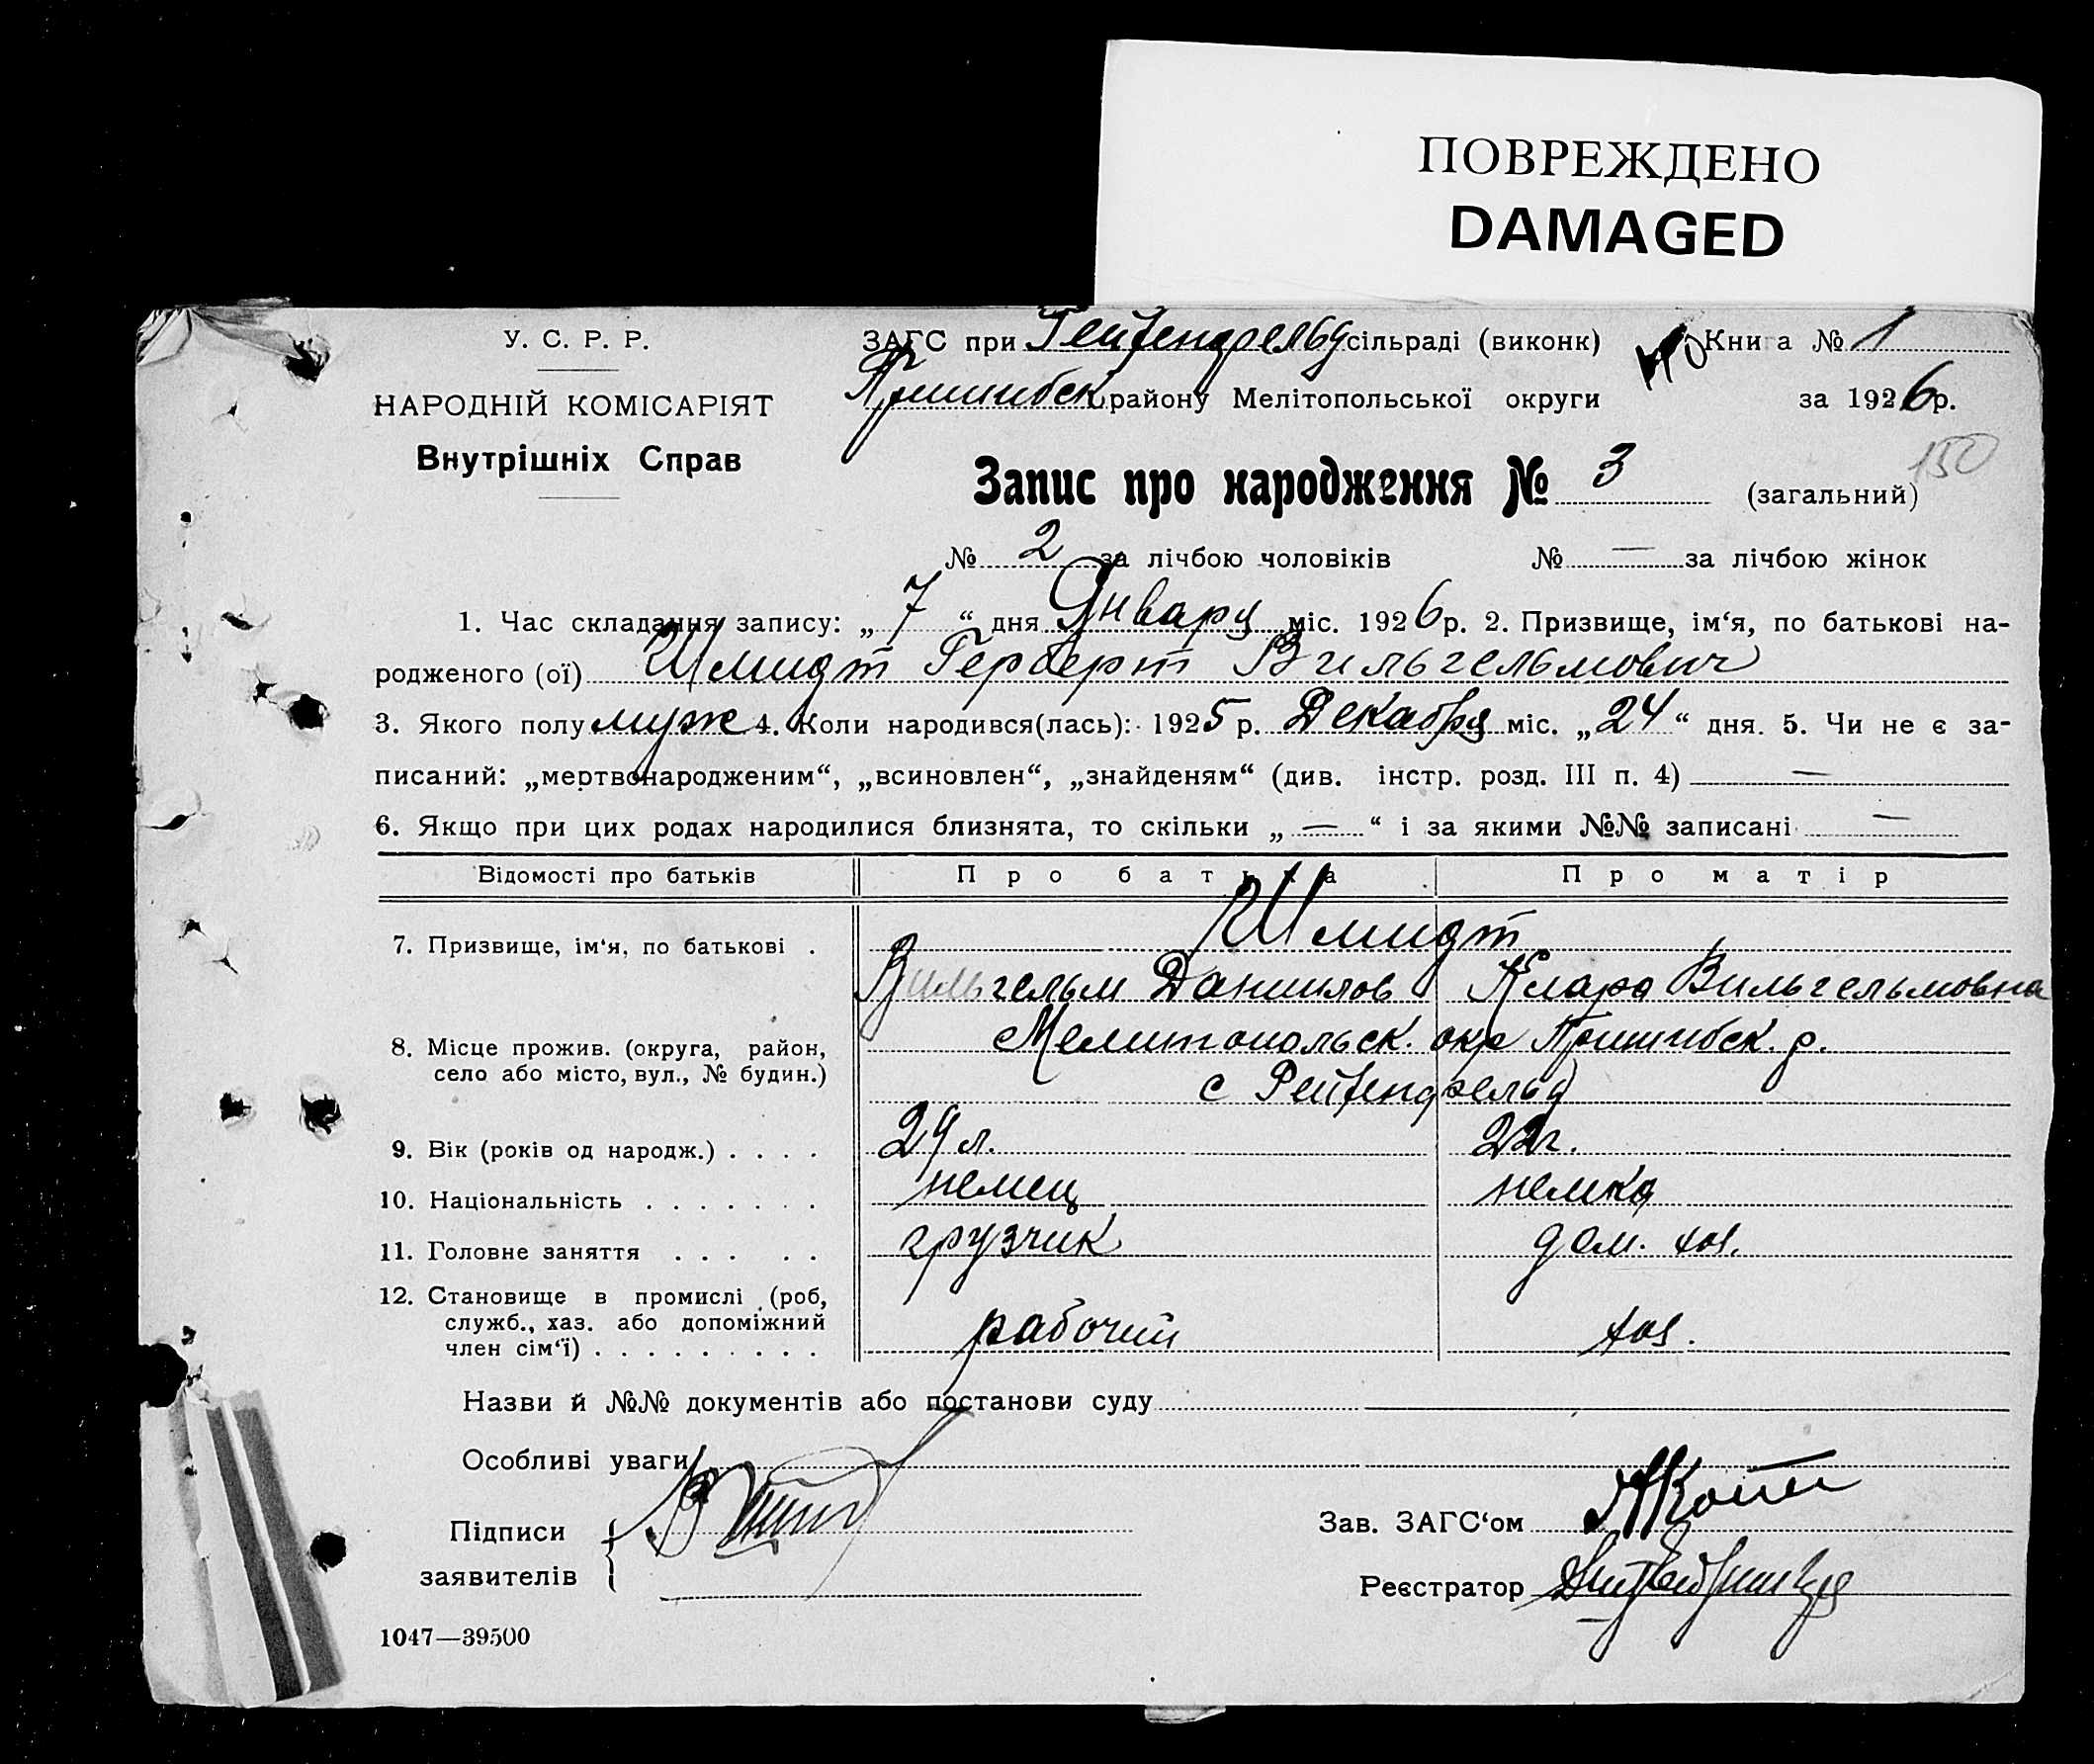 ПОВРЕЖДЕНО
DAMAGED
У. С. Р. Р.
НАРОДНІЙ КОМІСАРІЯТ
Внутрішніх Справ
ЗАГС при Рейхенфельд сільраді (виконк) Книга № 1
Пришибск. району Мелітопольської округи за 1926 р.
150
Запис про народження № 3 (загальний)
№ 2 за лічбою чоловіків № — за лічбою жінок
1. Час складання запису: „ 7 “ дня Января міс. 1926 р. 2. Призвище, ім‘я, по батькові на-
родженого (ої) Шмидт Герберт Вильгельмович
3. Якого полу муж 4. Коли народився(лась): 1925 р. Декабря міс. „ 24 “ дня. 5. Чи не є за-
писаний: „мертвонародженим“, „всиновлен“, „знайденям“ (див. інстр. розд. III п. 4) —
6. Якщо при цих родах народилися близнята, то скільки „ — “ і за якими №№ записані —
Відомості про батьків Про батька Про матір
7. Призвище, ім‘я, по батькові . Шмидт
Вильгельм Данилов Клара Вильгельмовна
8. Місце прожив. (округа, район, Мелитопольск. окр Пришибск. р.
село або місто, вул., № будин.) с Рейхенфельд
9. Вік (років од народж.) . . . . 24 л. 22 г.
10. Національність . . . . . . . немец немка
11. Головне заняття . . . . . грузчик дом. хоз.
12. Становище в промислі (роб,
служб., хаз. або допоміжний
член сім‘ї) . . . . . . . . . рабочий хоз.
Назви й №№ документів або постанови суду
Особливі уваги
Підписи
заявителів
Зав. ЗАГС‘ом
Реєстратор
1047—39500